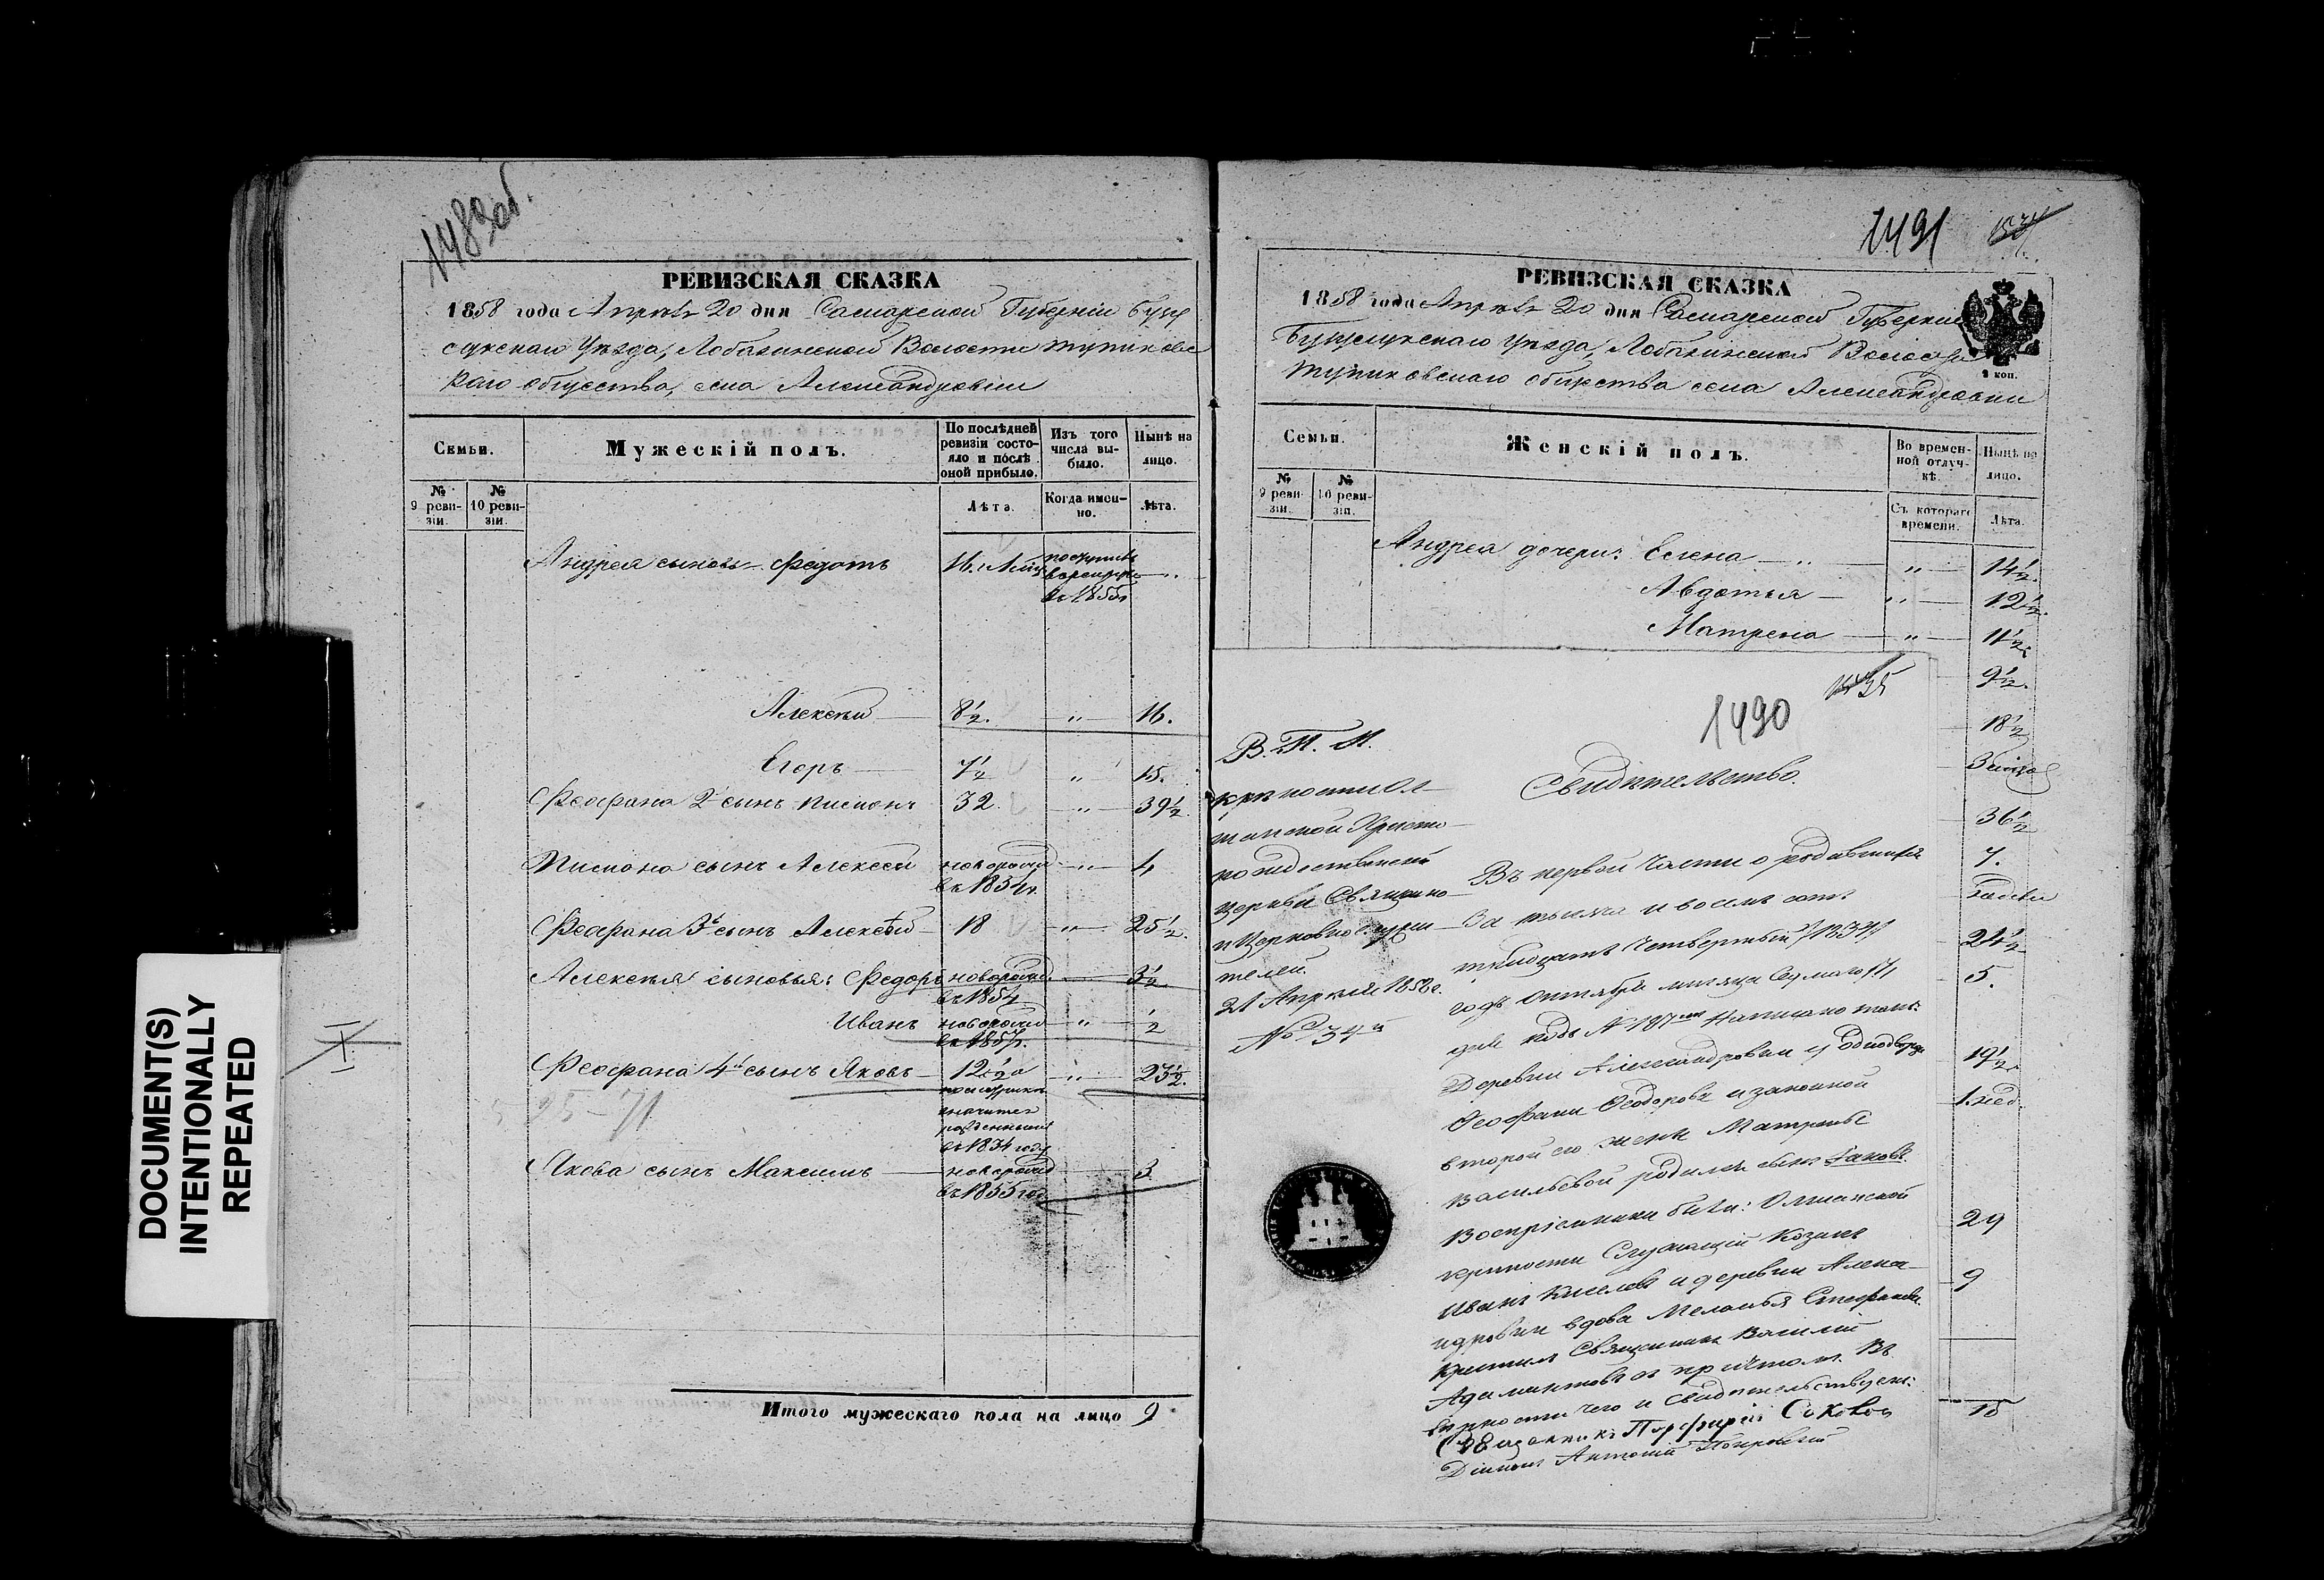 DOCUMENT(S)
INTENTIONALLY
REPEATED
1489об.
РЕВИЗСКАЯ СКАЗКА
1858 года Апрѣля 20 дня Самарской Губерніи Бузу
лукскаго Уѣзда, Лобазинской Волости Тупиковс
каго общества, села Александровки
Семьи.
Мужескій полъ.
По послѣдней ревизіи состояло и послѣ оной прибыло.
Изъ того числа выбыло.
Нынѣ на лицо.
№ 9 ревизіи.
№ 10 ревизіи.
Лѣта.
Когда именно.
Лѣта.
Андрея сыновья Федотъ 16.
въ 1855г
Алексѣй 8½. " 16.
Егоръ 7½ " 15.
Феофана 2й сынъ Пименъ 32 " 39½.
Пимена сынъ Алексей новорожд " 4
въ 1854г.
Феофана 3й сынъ Алексѣй 18 " 25½.
Алексѣя сыновья: Федоръ новорожд. 3½
въ 1854
Иванъ новорожд " ½
въ 1857г.
Феофана 4й сынъ Яковъ 12½ а " 23½.
по метрикѣ
значится
рожденнымъ
въ 1834 году
25-71
Якова сынъ Максимъ новорожд 3
въ 1855 год
Итого мужескаго пола на лицо 9
1491
РЕВИЗСКАЯ СКАЗКА
1858 года Апрѣля 20 дня Самарской Губерніи
Бузулукскаго Уѣзда, Лобазинской Волости
Тупиковскаго общества села Александровки
коп.
Семьи.
Женскій полъ.
Во временной отлучкѣ.
Нынѣ на лицо.
№ 9 ревизіи.
№ 10 ревизіи.
Съ котораго времени.
Лѣта.
Андрея дочери: Елена " 14½.
Авдотья " 12½.
Матрена " 11½.
9½.
18½
36½
7.
24½
5.
19½
1 нед.
29
9
1490
В. П. И.
Свидѣтельство.
крѣпости Ол
шанской Христо
рождественской
церкви Священно
и Церковно служи
телей.
21 Апрѣля 1858г.
№ 34й
Въ первой части о родившихся
За тысяча и восемь сотъ
тридцать четвертый /1834/
годъ Октября мѣсяца Седмаго /7/
дня подъ № 197мъ Написано такъ:
Деревни Александровки у однодворца
Феофана Феодорова и законной
второй его жены Матрены
Васильевой родился сынъ Іаковъ.
Воспріемники были: Олшанской
крѣпости Служащій Козакъ
Иванъ Киселевъ и деревни Алекса
ндровки вдова Меланья Стефанова.
Крестилъ Священникъ Василій
Адамантовъ съ причтомъ. Въ
вѣрности чего и свидѣтельствуемъ:
Священникъ Порфирій Соковъ
Діаконъ Антоній Покровскій